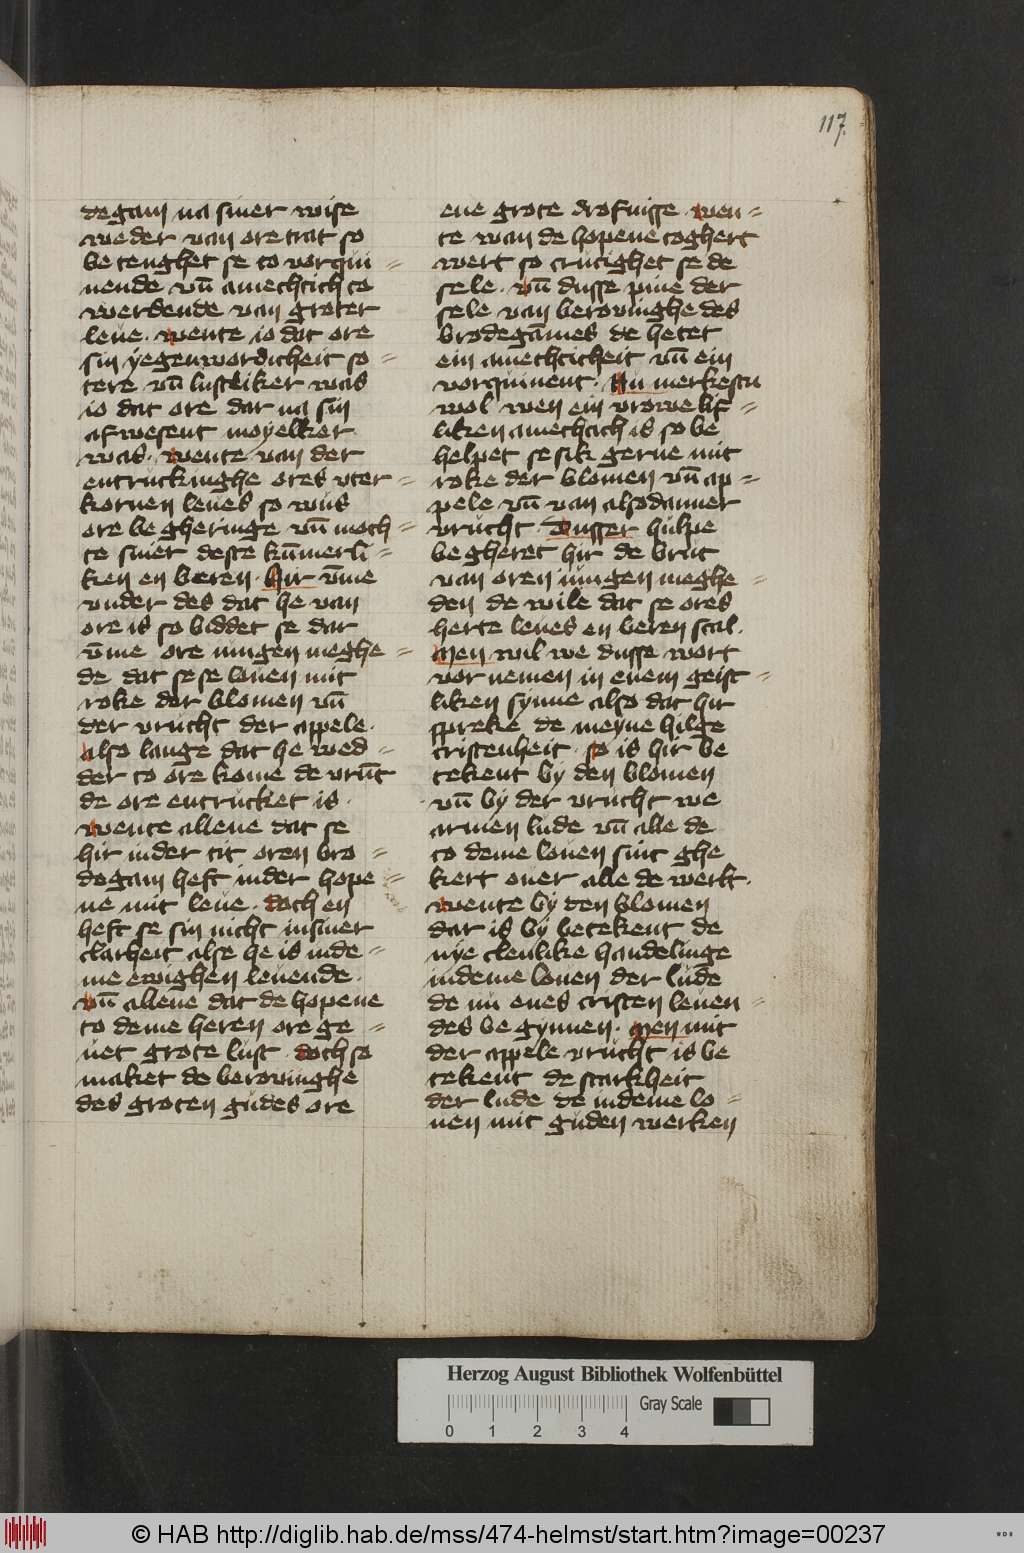 117.
degam na siner wise
weder van ore trat so
be tenghet se to vorqui=
nende vn̄ amechtich to
werdende van groter
leue. wente io dat ore
sin yegenwordicheit so=
tere vn̄ lustliker was
io dat ore dar na sin
afwesent moyelker
was. wente van der
entruckinghe ores vter=
kornen leues so wus
ore be gheringe vn̄ moch=
te siner deste kūmerli=
ken en beren. Hir vm̄e
vnder des dat he van
ore is so biddet se dar
vm̄e ore iungen meghe=
de dat se se louen mit
roke der blomen vn̄
der vrucht der appele.
also lange dat he wed=
der to ore kome de vrūt
de ore entrucket is.
wente allene dat se
hir in der tit oren bro=
degam heft in der hope=
ne mit leue. doch en
heft se sin nicht in siner
clarheit alse he is in de=
me ewighen leuende.
vn̄ allene dat de hopene
to deme heren ore ge=
uet grote lust. doch so
maket de berouinghe
des groten gudes ore
ene grote drofnisse. wen=
te wan de hopene toghert
wert so crucighet se de
sele. vn̄ dusse pine der
sele van berouinghe des
brodegāmes de hetet
ein amechticheit vn̄ ein
vorquinent. Nu merkestu
wol wen ein vrowe lif=
liken amechtich is so be
helpet se sik gerne mit
roke der blomen vn̄ ap=
pele vn̄ van alsodanner
vrucht. Dusser hulpe
begheret hir de brut
van oren iungen meghe=
den de wile dat se ores
herte leues en beren scal.
Men wil we dusse wort
vor nemen in enem geist=
liken synne also dat hir
spreke de meyne hilge
cristenheit. so is hir be
tekent by den blomen
vn̄ by der vrucht we
armen lude vn̄ alle de
to deme louen sint ghe
kert ouer alle de werlt.
wente by den blomen
dar is by betekent de
nye clenlike handelinge
in deme louen der lude
de nu enes cristen leuen=
des be gynnen. Men mit
der appele vrucht is be
tekent de starkheit
der lude de in deme lo=
uen mit guden werken
Herzog August Bibliothek Wolfenbüttel
Gray Scale
0 1 2 3 4
© HAB http://diglib.hab.de/mss/474-helmst/start.htm?image=00237